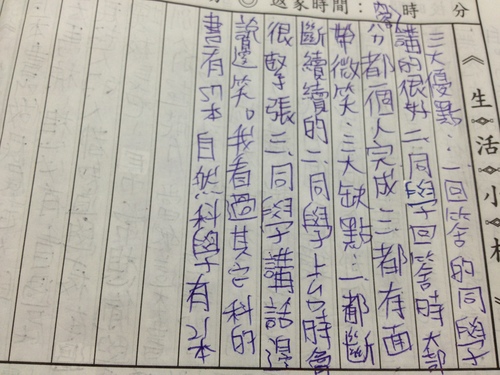 返家時間：時分
《生活小
三大優點：一回答的同學
講的很好二、同學回答時大部
分都一個人完成三都有面
帶微笑。三大缺點：一都斷
斷續續的二、同學上台時會
很緊張三、同學講話邊
說邊笑。我看過其它科的
書有5本自然科學有2本